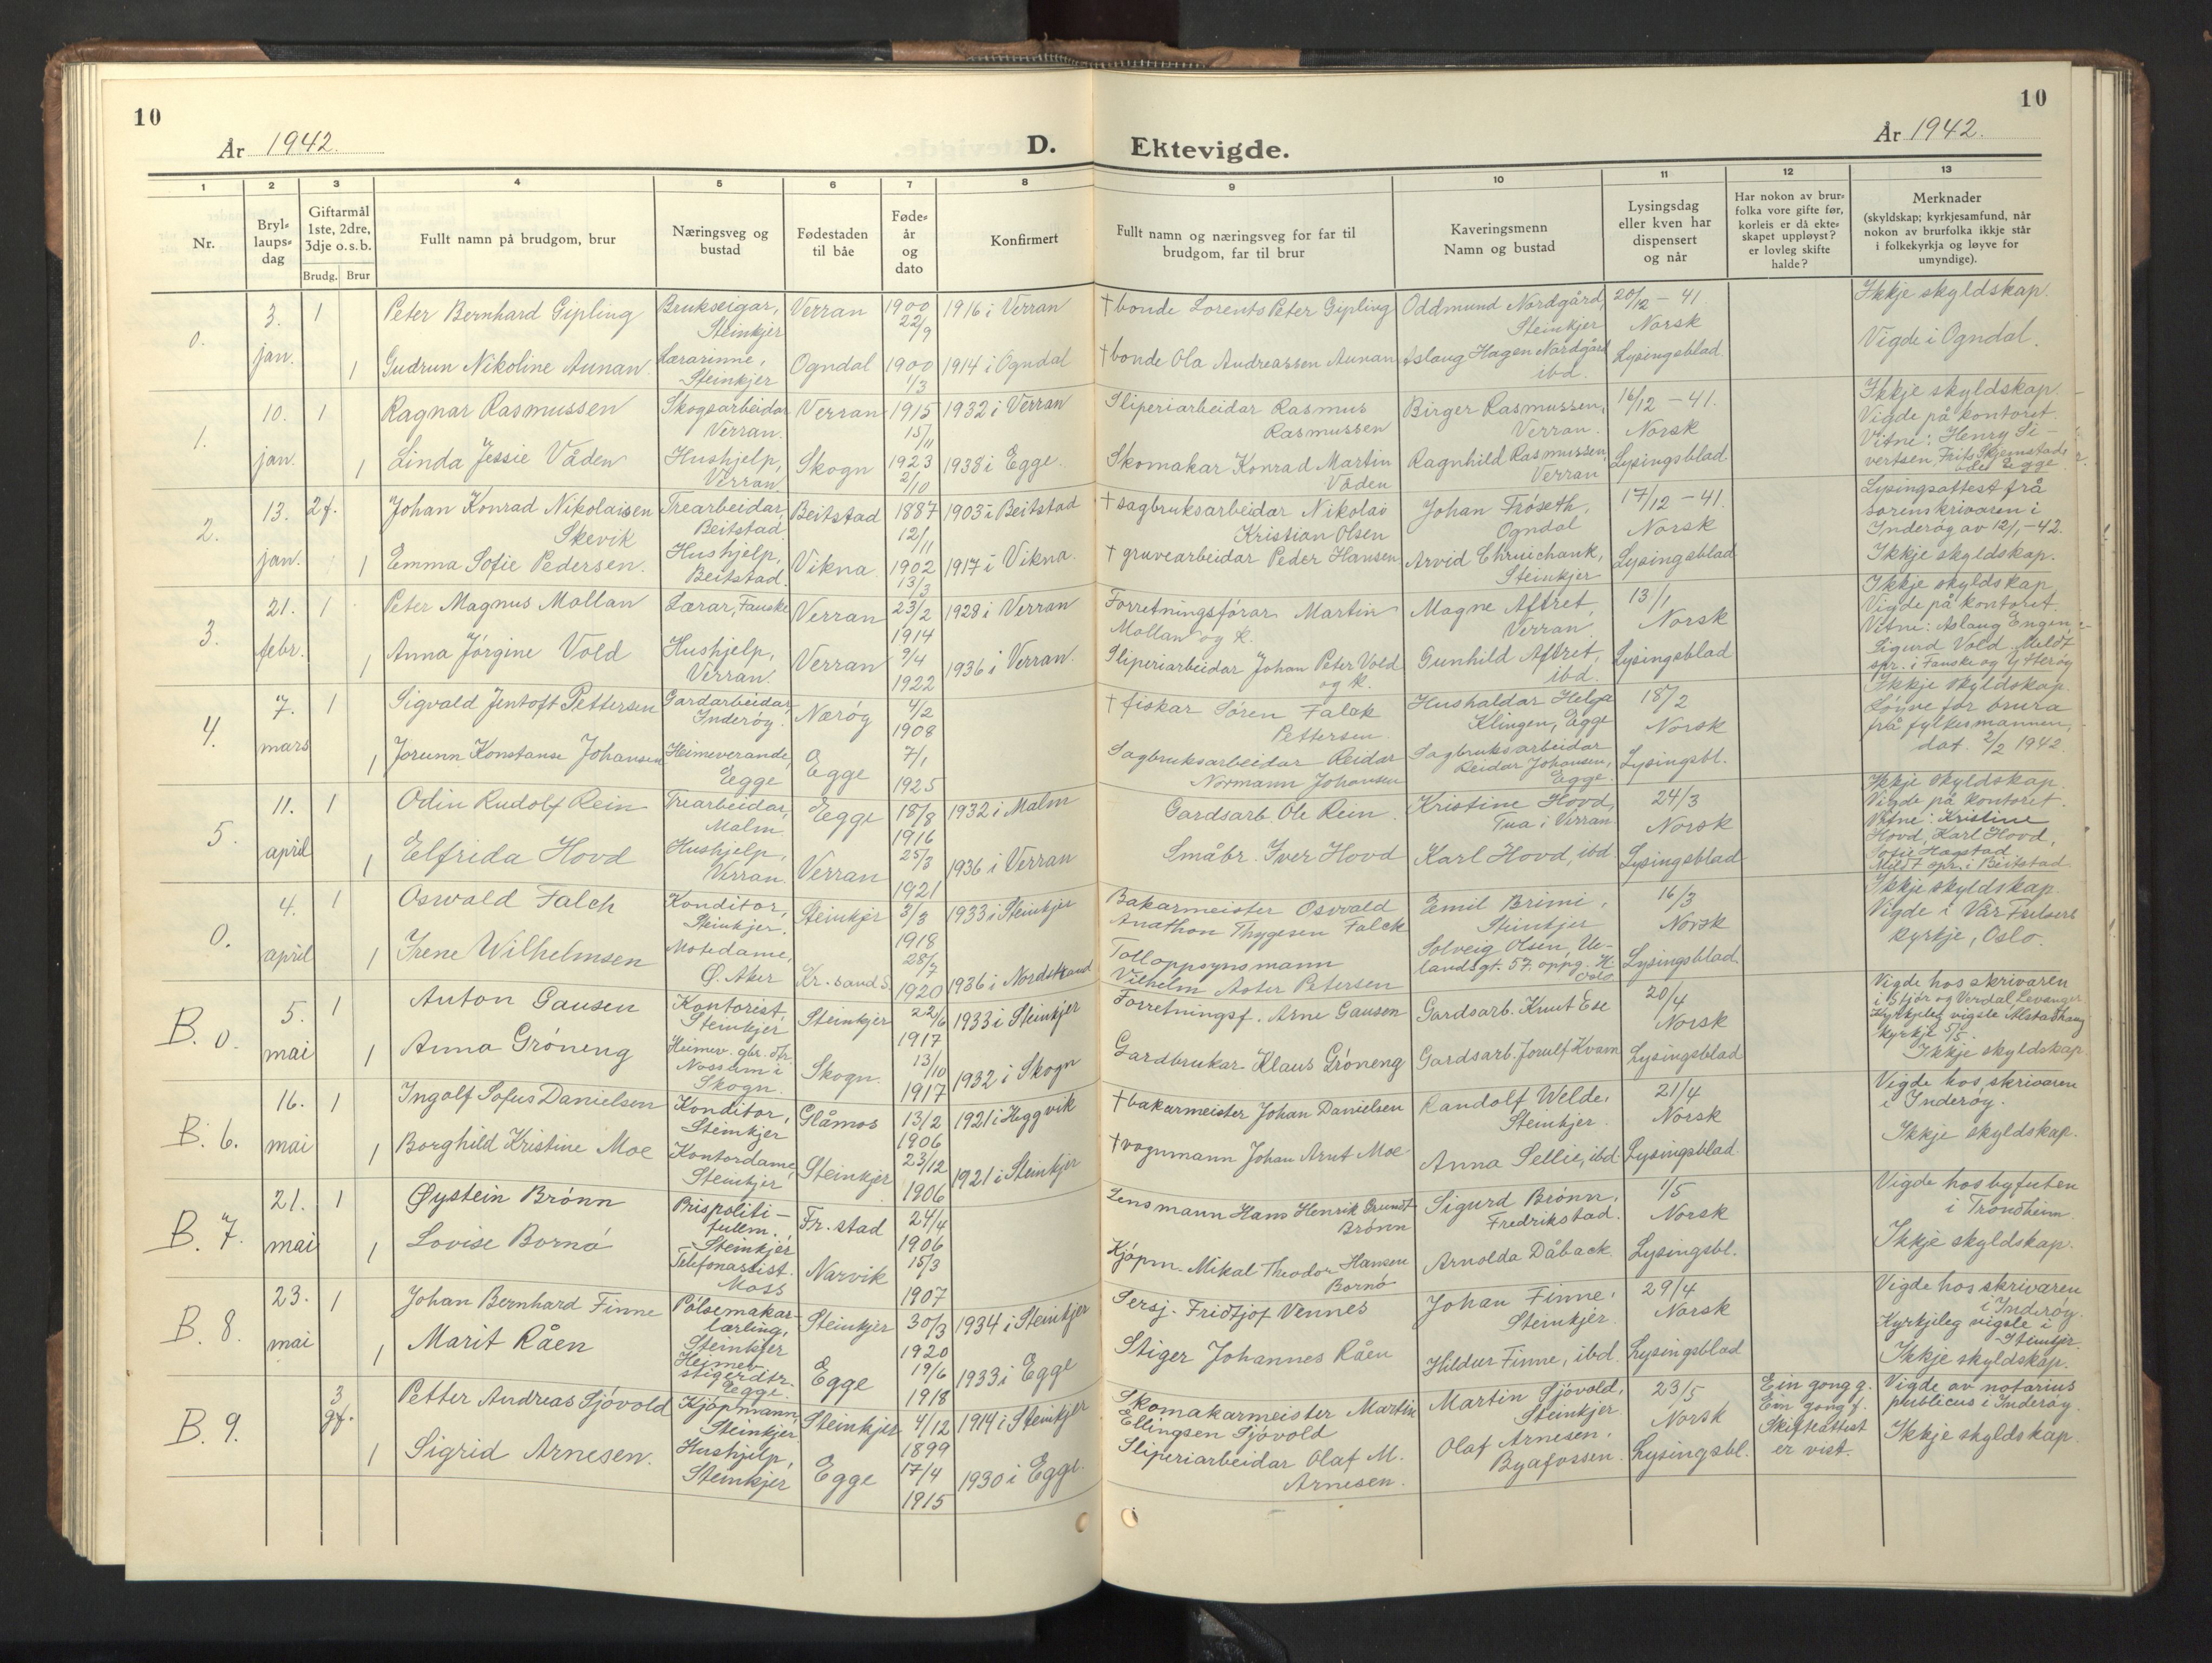 10
År 1942.
D. Ektevigde.
År 1942.
10
1 2 3 4 5 6 7 8 9 10 11 12 13
Nr.
Bryl-
laups-
dag
Giftarmål
1ste, 2dre,
3dje o.s.b.
Brudg. Brur
Fullt namn på brudgom, brur
Næringsveg og
bustad
Fødestaden
til båe
Føde-
år
og
dato
Konfirmert
Fullt namn og næringsveg for far til
brudgom, far til brur
Kaveringsmenn
Namn og bustad
Lysingsdag
eller kven har
dispensert
og når
Har nokon av brur-
folka vore gifte før,
korleis er då ekte-
skapet uppløyst?
er lovleg skifte
halde?
Merknader
(skyldskap; kyrkjesamfund, når
nokon av brurfolka ikkje står
i folkekyrkja og løyve for
umyndige).
0.
3.
jan.
1
Peter Bernhard Gipling
Brukseigar,
Steinkjer
Verran
1900
22/9
1916 i Verran
† bonde Lorents Peter Gipling
Oddmund Nordgård,
Steinkjer
20/12 - 41
Norsk
Lysingsblad.
Ikkje skyldskap.
Vigde i Ogndal.
1
Gudrun Nikoline Aunan.
Lærarinne,
Steinkjer
Ogndal
1900
1/3
1914 i Ogndal
† bonde Ola Andreassen Aunan
Aslaug Hagen Nordgård
ibd.
1.
10.
jan.
1
Ragnar Rasmussen
Skogsarbeidar
Verran.
Verran
1915
15/11
1932 i Verran
Sliperiarbeidar Rasmus
Rasmussen
Birger Rasmussen,
Verran.
16/12 - 41.
Norsk
Lysingsblad
Ikkje skyldskap.
Vigde på kontoret.
Vitne: Henry Si-
vertsen, Frits Skjemstad,
båe Egge.
1
Linda Jessie Våden
Hushjelp,
Verran.
Skogn
1923
2/10
1938 i Egge.
Skomakar Konrad Martin
Våden
Ragnhild Rasmussen,
Verran
2.
13.
jan.
2 f.
Johan Konrad Nikolaisen
Skevik
Trearbeidar,
Beitstad.
Beitstad
1887
12/11
1903 i Beitstad
† sagbruksarbeidar Nikolai
Kristian Olsen
Johan Frøseth,
Ogndal
17/12 - 41.
Norsk
Lysingsblad
Lysingsattest frå
sorenskrivaren i
Inderøy av 12/1 - 42.
Ikkje skyldskap.
1
Emma Sofie Pedersen.
Hushjelp,
Beitstad.
Vikna
1902
13/3
1917 i Vikna.
† gruvearbeidar Peder Hansen
Arvid
Steinkjer
3.
21.
febr.
1
Peter Magnus Mollan
Lærar, Fauske
Verran
23/2
1914
1928 i Verran
Forretningsførar Martin
Mollan og k.
Magne Aftret,
Verran
13/1
Norsk
Lysingsblad
Ikkje skyldskap,
Vigde på kontoret.
Vitne: Aslaug Engen,
Sigurd Vold. Meldt
spr. i Fauske og Ytterøy
1
Anna Jørgine Vold
Hushjelp,
Verran.
Verran
9/4
1922
1936 i Verran.
Sliperiarbeidar Johan Peter Vold
og k.
Gunhild Aftret,
ibd.
4.
7.
mars
1
Sigvald Jentoft Pettersen
Gardarbeidar,
Inderøy.
Nærøy
4/2
1908
† fiskar Søren Falck
Pettersen.
Hushaldar Helga
Klingen, Egge
18/2
Norsk
Lysingsbl.
Ikkje skyldskap.
Løyve for brura
frå fylkesmannen,
dat. 2/2 1942.
1
Jorunn Konstanse Johansen
Heimeverande,
Egge
Egge
7/1
1925
Sagbruksarbeidar Reidar
Normann Johansen
Sagbruksarbeidar
Reidar Johansen,
Egge.
5.
11.
april
1
Odin Rudolf Rein
Trearbeidar,
Malm
Egge
18/8
1916
1932 i Malm
Gardsarb. Ole Rein
Kristine Hovd,
Tua i Verran
24/3
Norsk
Lysingsblad
Ikkje skyldskap.
Vigde på kontoret.
Vitne: Kristine
Hovd, Karl Hovd,
Sofie Hagstad.
Meldt spr. i Beitstad
1
Elfrida Hovd
Hushjelp,
Verran.
Verran
25/3
1921
1936 i Verran
Småbr. Iver Hovd
Karl Hovd, ibd
0.
4.
april
1
Oswald Falch
Konditor,
Steinkjer.
Steinkjer
3/3
1918
1933 i Steinkjer
Bakarmeister Osvald
Anathon Thygesen Falck
Emil Brimi,
Steinkjer
16/3
Norsk
Lysingsblad
Ikkje skyldskap.
Vigde i Vår Frelsers
kyrkje, Oslo.
1
Irene Wilhelmsen
Motedame,
Ø. Aker
Kr.sand S.
28/7
1920
1936 i Nordstrand
Tolloppsynsmann
Vilhelm Aster Petersen
Solveig Olsen, Ue-
landsgt. 57. oppg. H.
Oslo
B. 0.
5.
mai
1
Anton Gausen
Kontorist,
Steinkjer
Steinkjer
22/6
1917
1933 i Steinkjer
Forretningsf. Arne Gausen
Gardsarb. Knut Ese
20/4
Norsk
Lysingsblad
Vigde hos skrivaren
i Stjør og Verdal, Levanger
Kyrkjeleg vigsle Alstadhaug
kyrkje 5/5.
Ikkje skyldskap
1
Anna Grøneng
Heimev. gbr. dtr.
Nossum i
Skogn.
Skogn.
13/10
1917
1932 i Skogn
Gardbrukar Klaus Grøneng
Gardsarb. Jorulf Kvam
B. 6.
16.
mai
1
Ingolf Sofus Danielsen
Konditor,
Steinkjer
Glåmos
13/2
1906
1921 i Heggvik
† bakarmeister Johan Danielsen
Randolf Welde,
Steinkjer.
21/4
Norsk
Lysingsblad
Vigde hos skrivaren
i Inderøy.
Ikkje skyldskap.
1
Borghild Kristine Moe
Kontordame,
Steinkjer
Steinkjer
23/12
1906
1921 i Steinkjer
† vognmann Johan Arnt Moe
Anna Sellie, ibd
B. 7.
21.
mai
1
Øystein Brønn
Prispoliti-
fullm.
Steinkjer
Fr.stad
24/4
1906
Lensmann Hans Henrik Grundt
Brønn
Sigurd Brønn,
Fredrikstad.
1/5
Norsk
Lysingsbl.
Vigde hos byfuten
i Trondheim.
Ikkje skyldskap.
1
Lovise Bornø
Telefonassist.
Moss
Narvik
15/3
1907
Kjøpm. Mikal Theodor Hansen
Bornø
Arnolda Dåback
B. 8.
23.
mai
1
Johan Bernhard Finne
Pølsemakar-
lærling,
Steinkjer
Steinkjer
30/3
1920
1934 i Steinkjer
Sersj. Fridtjof Vennes
Johan Finne,
Steinkjer.
29/4
Norsk
Lysingsblad
Vigde hos skrivaren
i Inderøy.
Kyrkjeleg vigsle i
Steinkjer.
Ikkje skyldskap.
1
Marit Råen
Heimev.
stigerdtr.
Egge.
Egge
19/6
1918
1933 i Egge
Stiger Johannes Råen
Hildur Finne, ibd.
B. 9.
3
gf.
Petter Andreas Sjøvold
Kjøpmann,
Steinkjer
Steinkjer
4/12
1899
1914 i Steinkjer
Skomakarmeister Martin
Ellingsen Sjøvold
Martin Sjøvold,
Steinkjer
23/5
Norsk
Lysingsbl.
Ein gong g.
Ein gong f.
Skifteattest
er vist.
Vigde av notarius
publicus i Inderøy.
Ikkje skyldskap.
1
Sigrid Arnesen.
Hushjelp,
Steinkjer
Egge
17/4
1915
1930 i Egge.
Sliperiarbeidar Olaf M.
Arnesen.
Olaf Arnesen,
Byafossen.